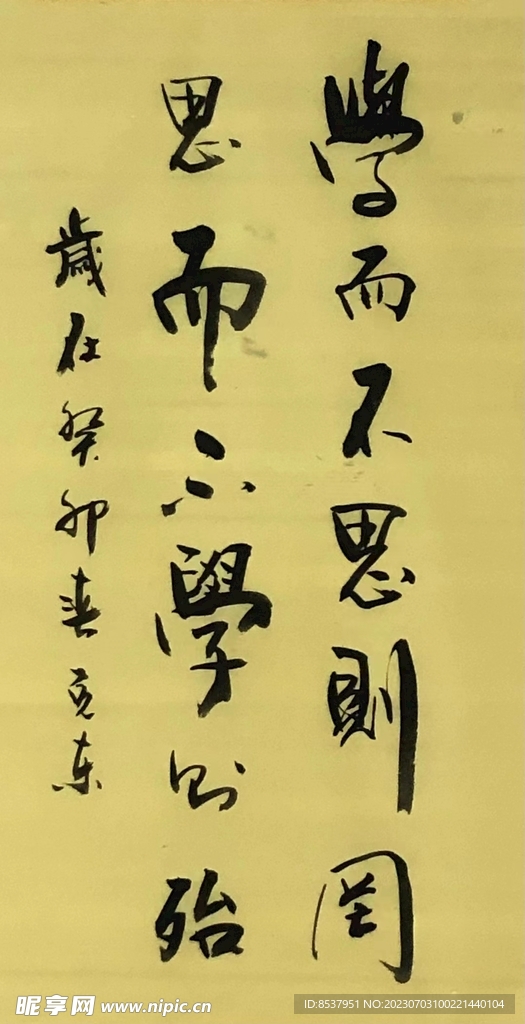 學而不思則罔
思而不學則殆
歲在癸卯春克東
昵享网 www.nipic.cn
ID:8537951 NO:20230703100221440104